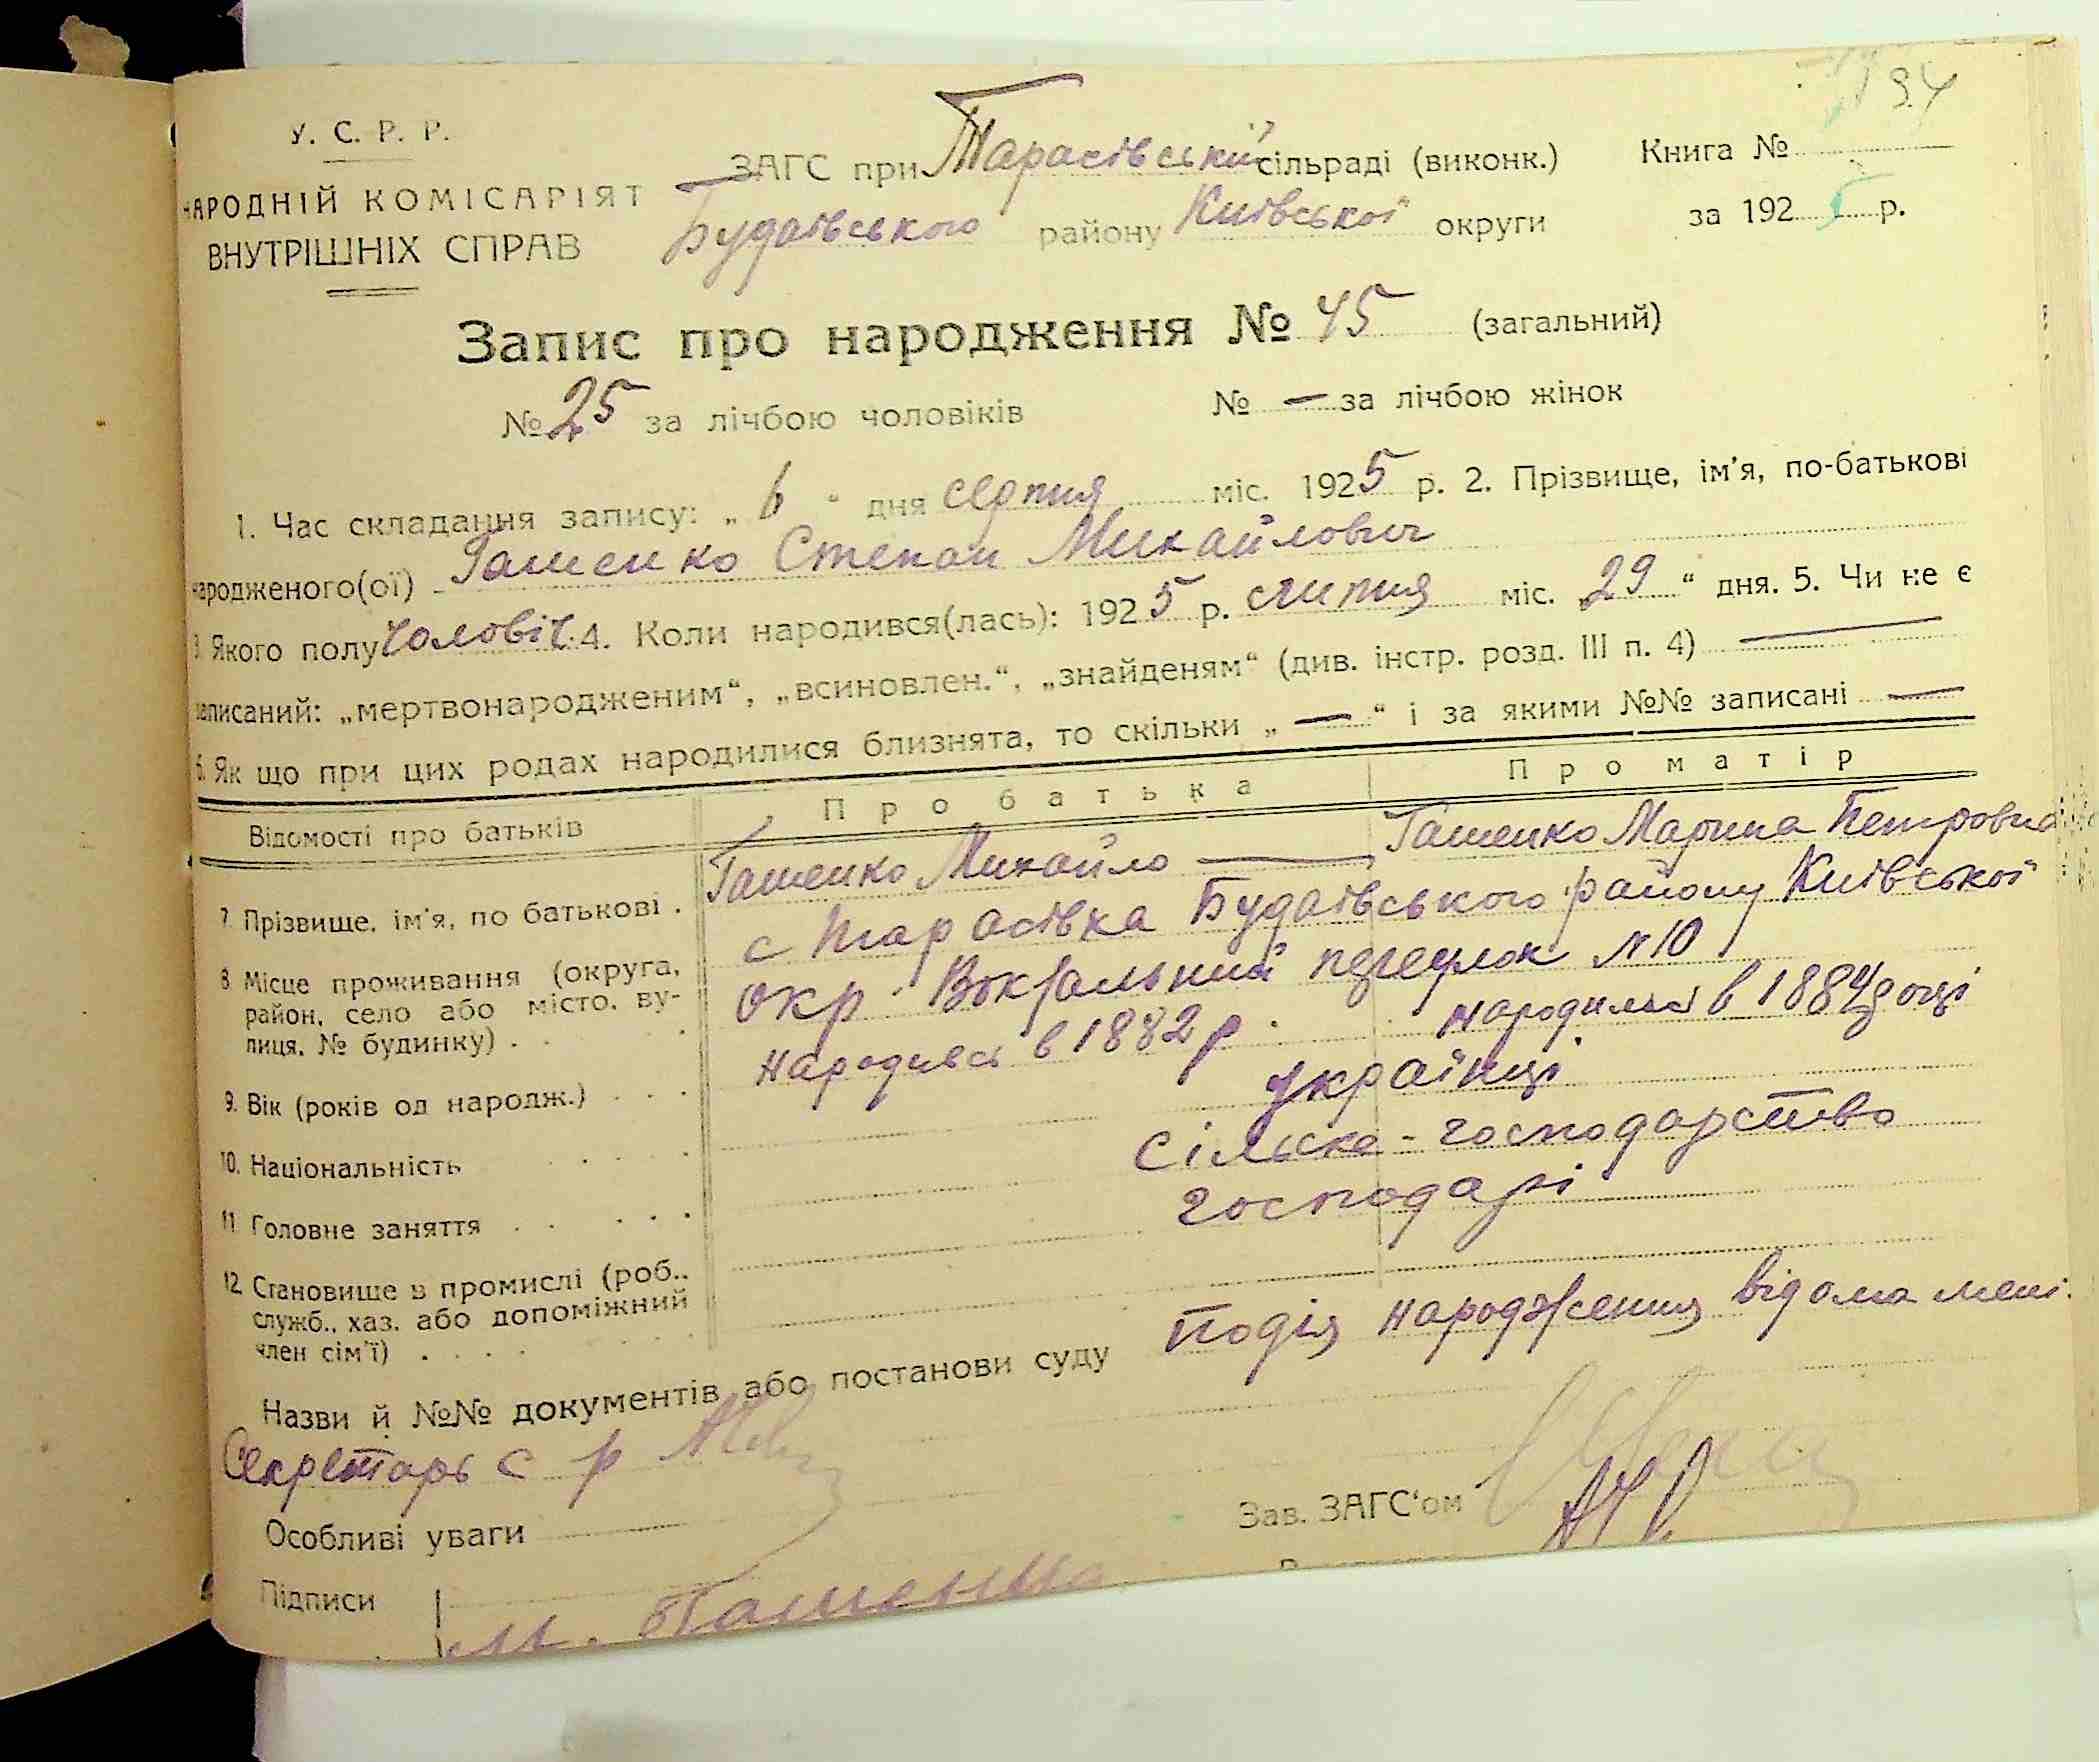 94
У. С. Р. Р.
НАРОДНІЙ КОМІСАРІЯТ
ВНУТРІШНІХ СПРАВ
ЗАГС при Тарасівській сільраді (виконк.) Книга №
Будаївського району Київської округи за 1925 р.
Запис про народження № 45 (загальний)
№ 25 за лічбою чоловіків № — за лічбою жінок
1. Час складання запису: „ 6 “ дня серпня міс. 1925 р. 2. Прізвище, ім'я, по-батькові
народженого(ої) Гашенко Степан Михайлович
3. Якого полу чоловіч. 4. Коли народився(лась): 1925 р. липня міс. „29“ дня. 5. Чи не є
записаний: „мертвонародженим“, „всиновлен.“, „знайденям“ (див. інстр. розд. III п. 4) —
6. Як що при цих родах народилися близнята, то скільки „ — “ і за якими №№ записані —
Відомості про батьків Про батька Про матір
7. Прізвище, ім'я, по батькові . Гашенко Михайло — Гашенко Марина Петровна
8. Місце проживання (округа, район, село або місто, ву-
лиця, № будинку) . с Тарасівка Будаївського району Київської
окр. Вокзальний переулок №10
9. Вік (років од народж.) . . . народився в 1882 р. народилася в 1884 році
10. Національність українці
11. Головне заняття Сільске-господарство
12. Становище в промислі (роб.,
служб., хаз. або допоміжний
член сім'ї) господарі
Назви й №№ документів або постанови суду подія народження відома мені.
Секретарь с р
Зав. ЗАГС'ом
Особливі уваги
Підписи М. Гашенко